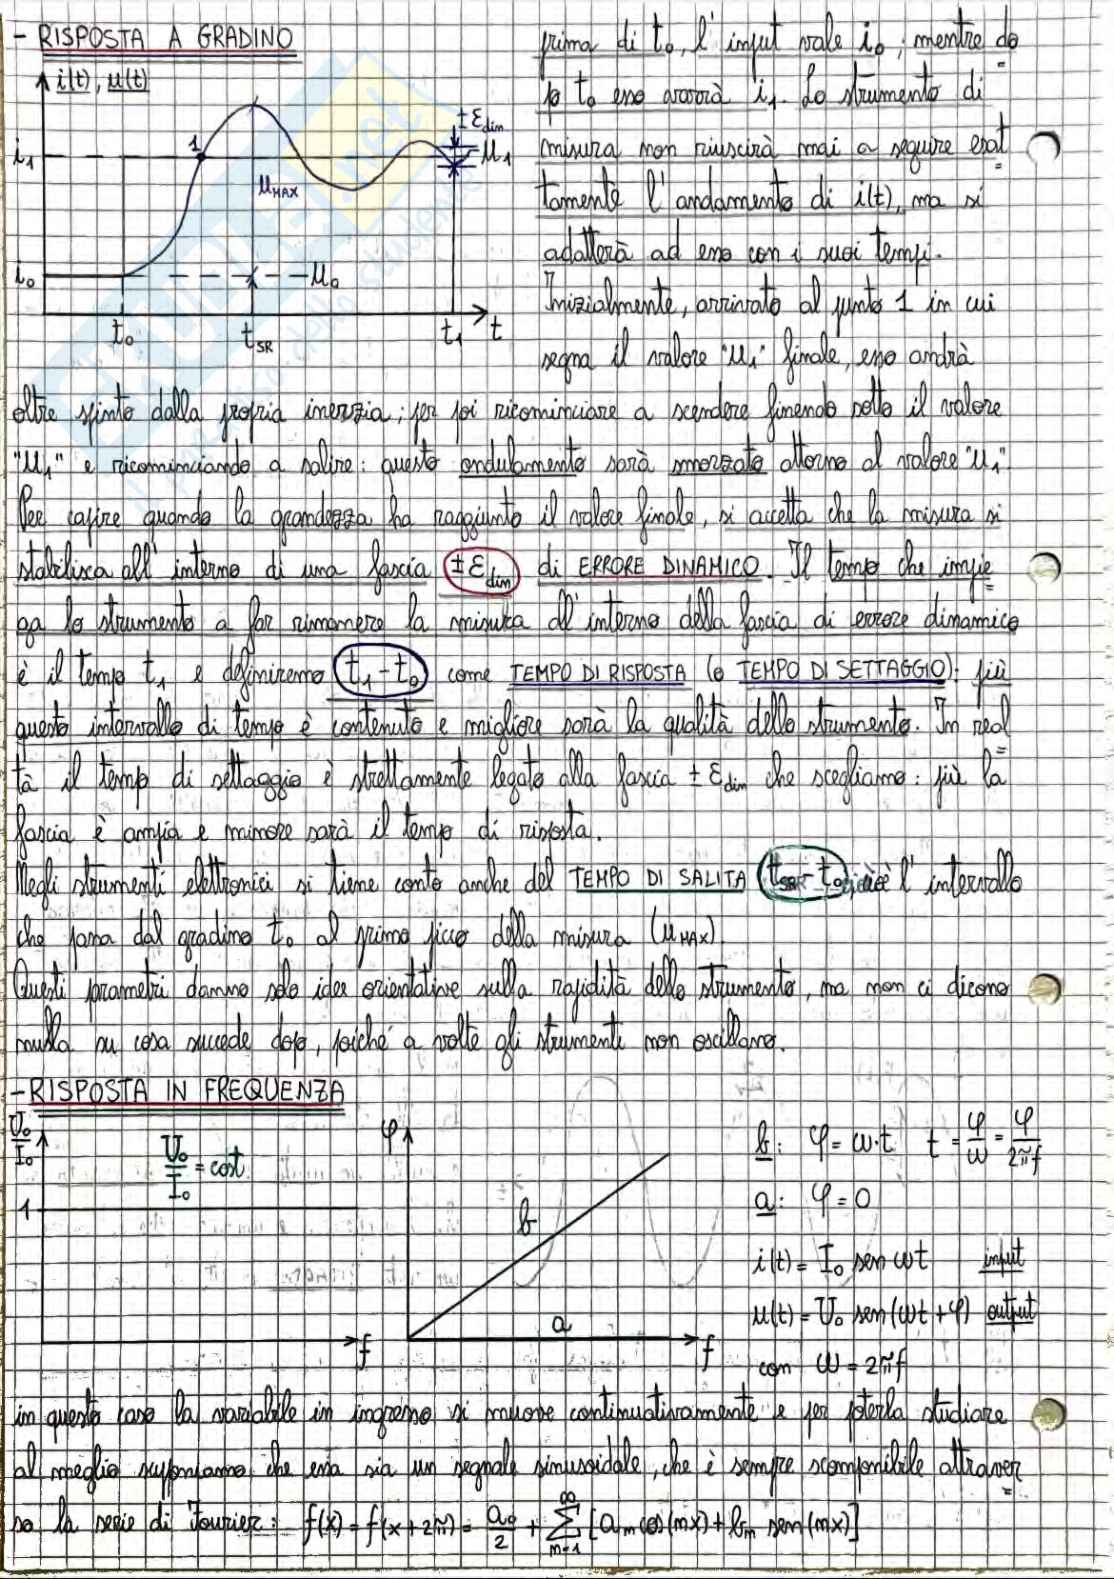 - RISPOSTA A GRADINO
i(t), u(t)
i₁
1
u_MAX
± ε_din
u₁
i₀
u₀
t₀
t_SR
t₁
t
prima di t₀, l'input vale i₀; mentre do
po t₀ esso avorrà i₁. Lo strumento di
misura non riuscirà mai a seguire esat
tamente l'andamento di i(t), ma si
adatterà ad esso con i suoi tempi.
Inizialmente, arrivato al punto 1 in cui
segna il valore "u₁" finale, esso andrà
oltre spinto dalla propria inerzia; per poi ricominciare a scendere finendo sotto il valore
"u₁" e ricominciando a salire: questo ondulamento sarà smorzato attorno al valore "u₁"
Per capire quando la grandezza ha raggiunto il valore finale, si accetta che la misura si
stabilisca all'interno di una fascia ±ε_din di ERRORE DINAMICO. Il tempo che impie
ga lo strumento a far rimanere la misura all'interno della fascia di errore dinamico
è il tempo t₁ e definiremo t₁-t₀ come TEMPO DI RISPOSTA (o TEMPO DI SETTAGGIO): più
questo intervallo di tempo è contenuto e migliore sarà la qualità dello strumento. In real
tà il tempo di settaggio è strettamente legato alla fascia ± ε_din che scegliamo: più la
fascia è ampia e minore sarà il tempo di risposta.
Negli strumenti elettronici si tiene conto anche del TEMPO DI SALITA t_SR-t₀, cioè l'intervallo
che passa dal gradino t₀ al primo picco della misura (u_MAX).
Questi parametri danno solo idee orientative sulla rapidità dello strumento, ma non ci dicono
nulla su cosa succede dopo, poiché a volte gli strumenti non oscillano.
- RISPOSTA IN FREQUENZA
U₀/I₀
U₀/I₀ = cost
1
f
φ
b
a
f
b: φ = ω·t t = φ/ω = φ/2πf
a: φ = 0
i(t) = I₀ sen ωt input
u(t) = U₀ sen(ωt + φ) output
con ω = 2πf
in questo caso la variabile in ingresso si muove continuativamente e per poterla studiare
al meglio supponiamo che essa sia un segnale sinusoidale, che è sempre scomponibile attraver
so la serie di Fourier: f(x) = f(x+2π) = a₀/2 + ∑_{m=1}^{∞} [a_m cos(mx) + b_m sen(mx)]